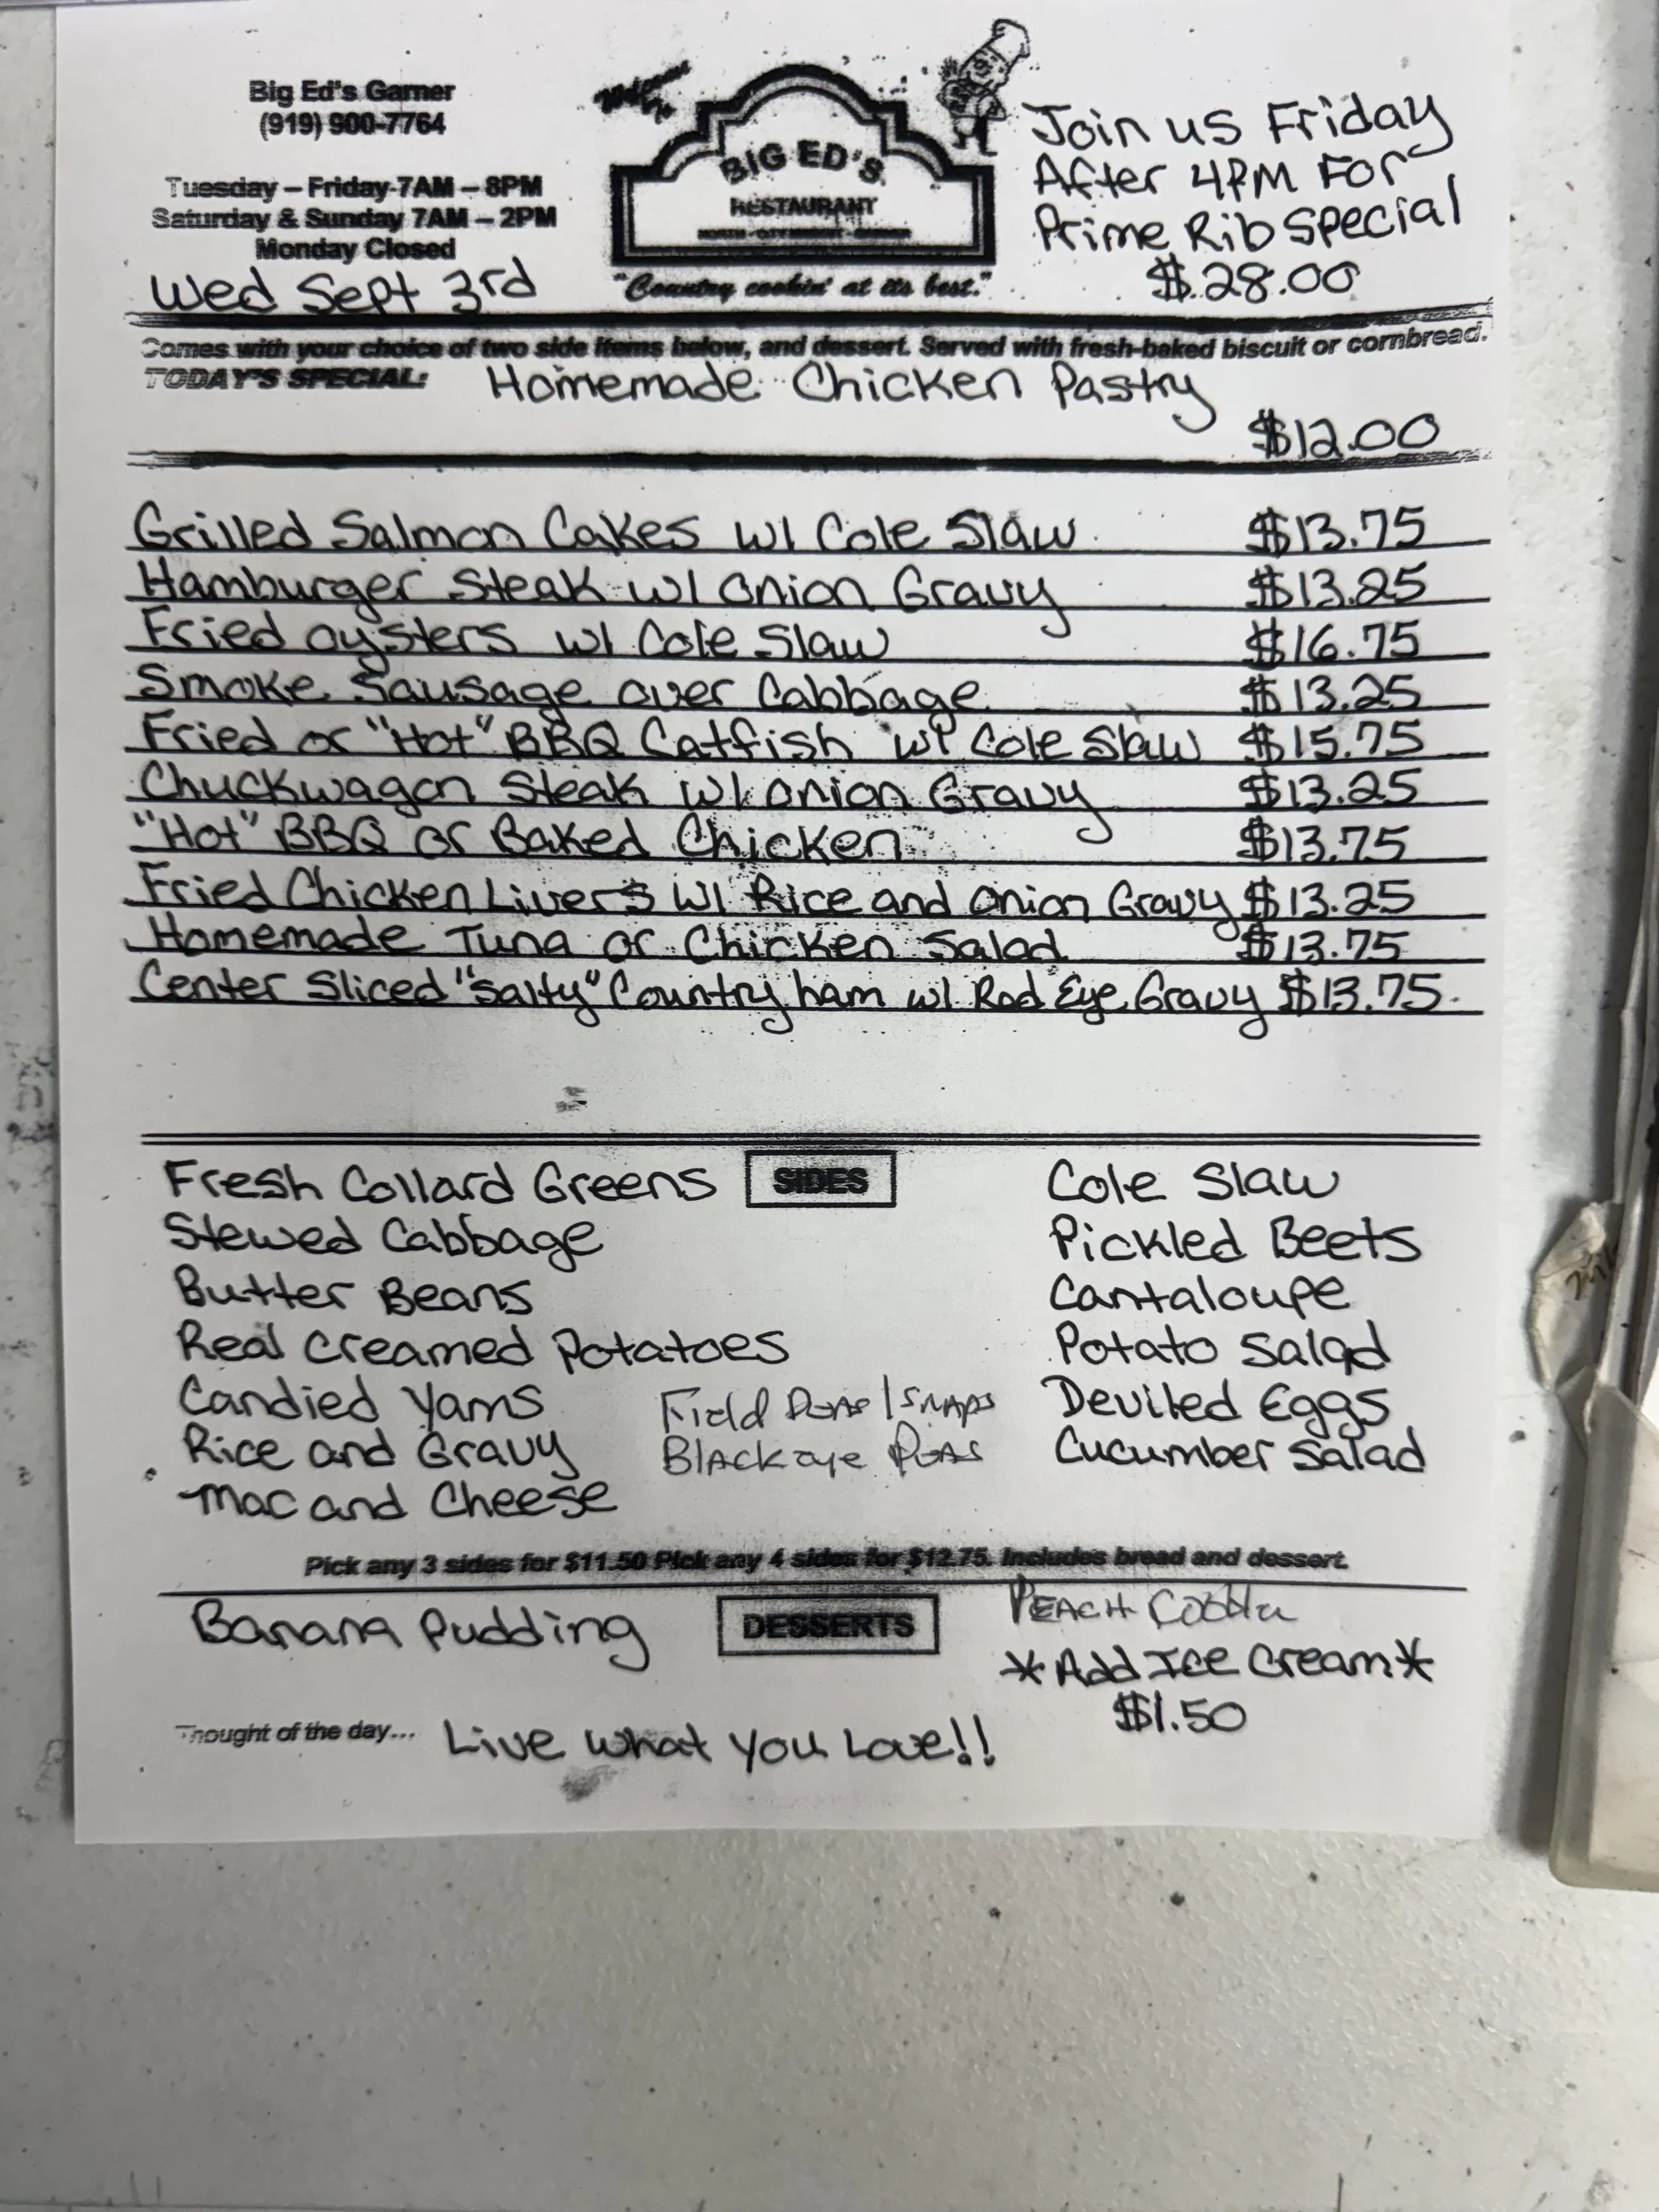 Big Ed's Garner
(919) 900-7764
Tuesday – Friday 7AM – 8PM
Saturday & Sunday 7AM – 2PM
Monday Closed
Wed Sept 3rd
BIG ED'S
RESTAURANT
"Country cookin' at its best."
Join us Friday
After 4PM For
Prime Rib Special
$28.00
Comes with your choice of two side items below, and dessert. Served with fresh-baked biscuit or cornbread.
TODAY'S SPECIAL: Homemade Chicken Pastry
$12.00
Grilled Salmon Cakes w/ Cole Slaw $13.75
Hamburger Steak w/ Onion Gravy $13.25
Fried Oysters w/ Cole Slaw $16.75
Smoke Sausage over Cabbage $13.25
Fried or "Hot" BBQ Catfish w/ Cole Slaw $15.75
Chuckwagon Steak w/ Onion Gravy $13.25
"Hot" BBQ or Baked Chicken $13.75
Fried Chicken Livers w/ Rice and Onion Gravy $13.25
Homemade Tuna or Chicken Salad $13.75
Center Sliced "Salty" Country ham w/ Red Eye Gravy $13.75
SIDES
Fresh Collard Greens
Stewed Cabbage
Butter Beans
Real Creamed Potatoes
Candied Yams
Rice and Gravy
Mac and Cheese
Field Peas/Snaps
Blackeye Peas
Cole Slaw
Pickled Beets
Cantaloupe
Potato Salad
Deviled Eggs
Cucumber Salad
Pick any 3 sides for $11.50 Pick any 4 sides for $12.75. Includes bread and dessert.
DESSERTS
Banana Pudding
Peach Cobbler
*Add Ice Cream*
$1.50
Thought of the day... Live what you Love!!